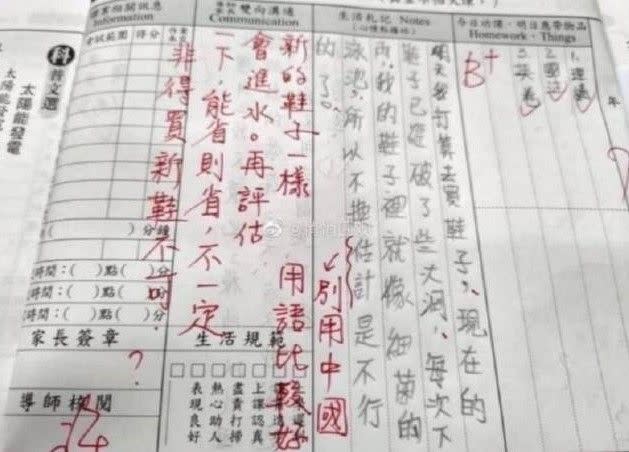 今日功課、明日應帶物品
Homework、Things
年
B+
生活札記 Notes
(心情點播站)
明天我打算去買鞋子,現在的
鞋子已經破了些大洞,每次下
雨,我的鞋子裡就像細菌的
泳池,所以不換估計是不行
的了。
別用中國
用語比較好
雙向溝通
Communication
新的鞋子一樣
會進水。再評估
一下,能省則省,不一定
非得買新鞋不可
生活規範
上課認真
盡責打掃
熱心助人
表現良好
Information
考試範圍
得分
分鐘
時間:( )點( )分
時間:( )點( )分
時間:( )點( )分
家長簽章
?
導師核閱
科
普文選
太陽能發電